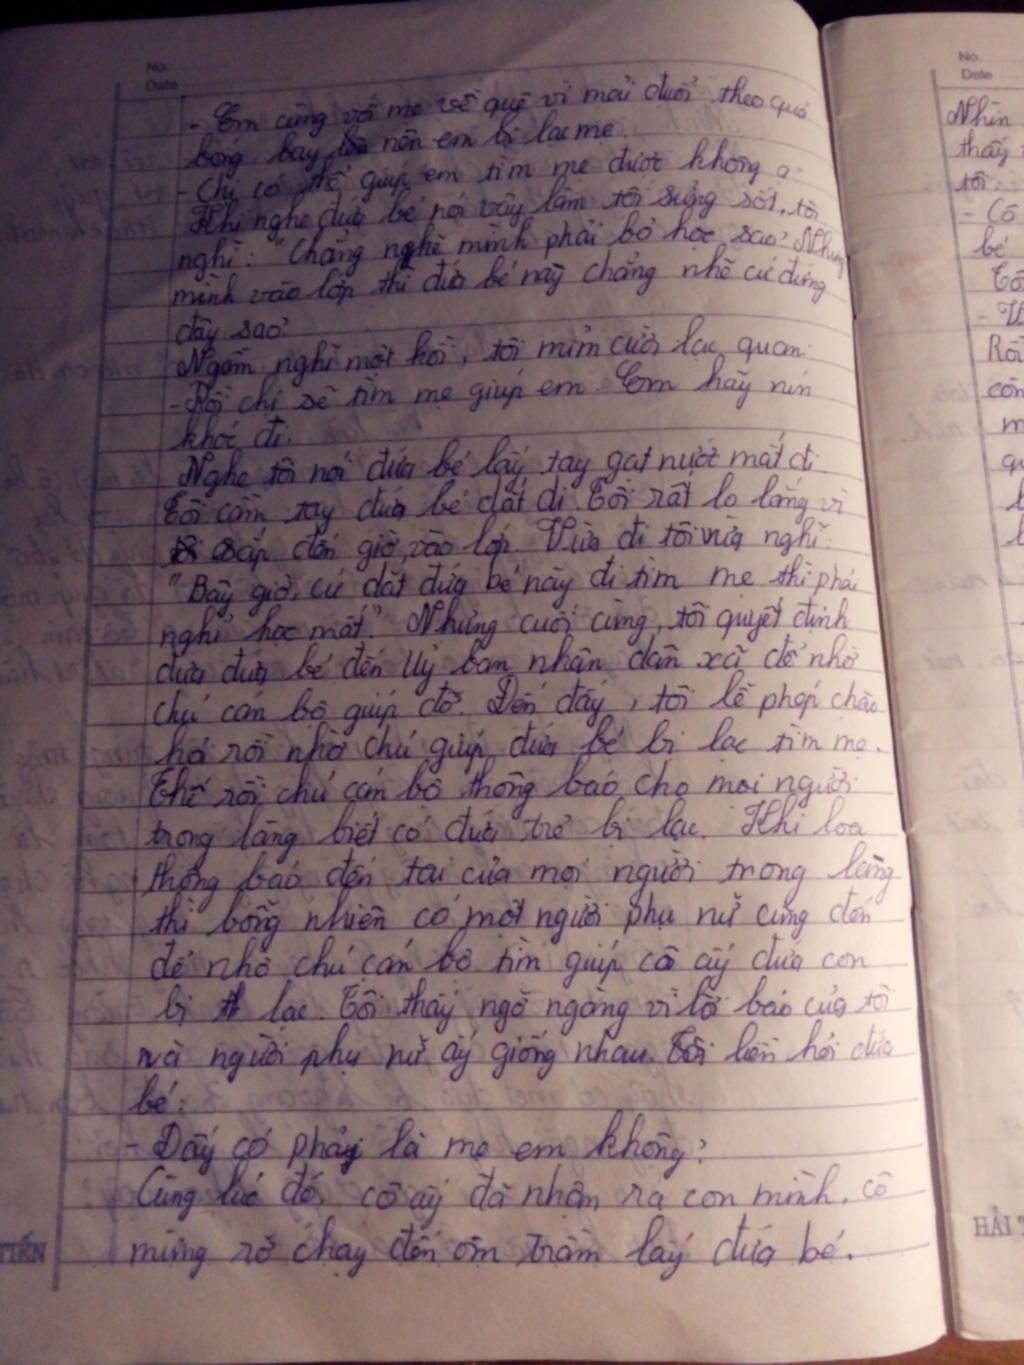 No.
Date
- Em cùng với mẹ về quê vì mải đuổi theo quả
bóng bay nên em bị lạc mẹ.
- Chị có thể giúp em tìm mẹ được không ạ.
Khi nghe đứa bé nói vậy làm tôi sửng sốt, tôi
nghĩ: "Chẳng nghẽ mình phải bỏ học sao? Nhưng
mình vào lớp thì đứa bé này chẳng nhẽ cứ đứng
đây sao?
Ngẫm nghĩ một hồi, tôi mỉm cười lạc quan:
- Rồi chị sẽ tìm mẹ giúp em. Em hãy nín
khóc đi.
Nghe tôi nói đứa bé lấy tay gạt nước mắt đi
Tôi cầm tay đứa bé dắt đi. Tôi rất lo lắng vì
sắp đến giờ vào lớp. Vừa đi tôi vừa nghĩ:
"Bây giờ, cứ dắt đứa bé này đi tìm mẹ thì phải
nghỉ học mất". Nhưng cuối cùng, tôi quyết định
đưa đứa bé đến Uỷ ban nhân dân xã để nhờ
chú cán bộ giúp đỡ. Đến đấy, tôi lễ phép chào
hỏi rồi nhờ chú giúp đứa bé bị lạc tìm mẹ.
Thế rồi, chú cán bộ thông báo cho mọi người
trong làng biết có đứa trẻ bị lạc. Khi loa
thông báo đến tai của mọi người trong làng
thì bỗng nhiên có một người phụ nữ cũng đến
để nhờ chú cán bộ tìm giúp cô ấy đứa con
bị lạc. Tôi thấy ngỡ ngàng vì lời báo của tôi
và người phụ nữ ấy giống nhau. Tôi liền hỏi đứa
bé:
- Đấy có phải là mẹ em không?
Cùng lúc đó, cô ấy đã nhận ra con mình, cô
mừng rỡ chạy đến ôm trầm lấy đứa bé.
TIẾN
No.
Date
Nhìn
thấy
tôi.
- Cô
bé
Rồi
HẢI